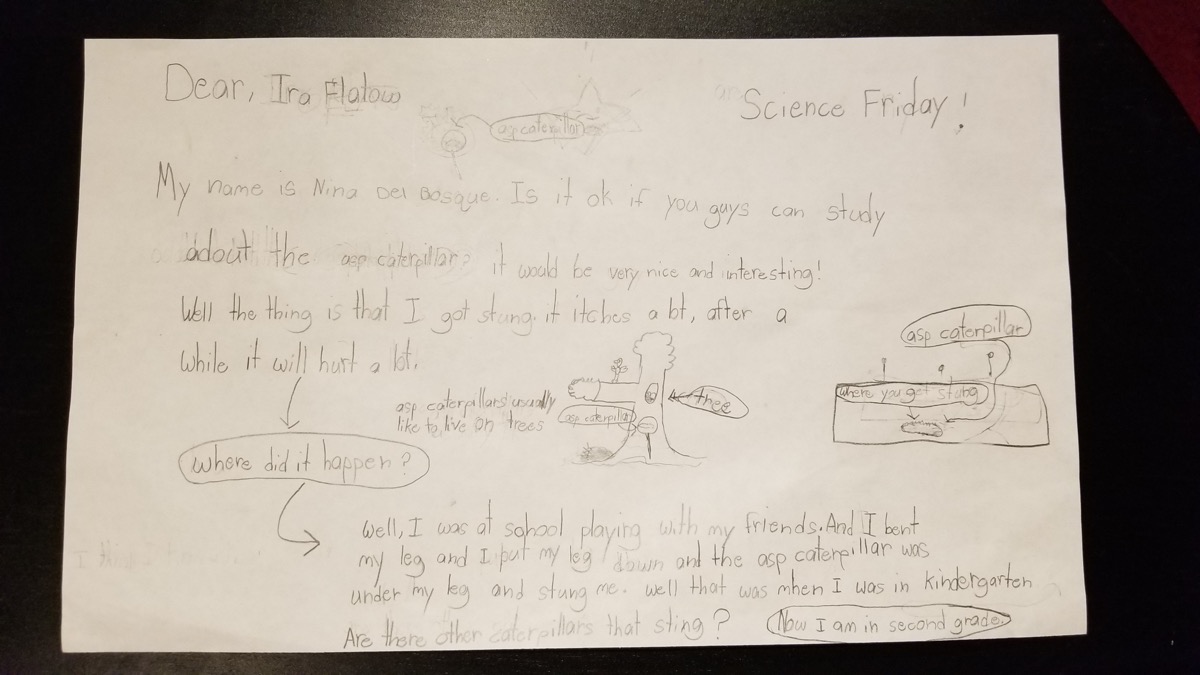 Dear, Ira Flatow
Science Friday!
asp caterpillar
My name is Nina Del Bosque. Is it ok if you guys can study
adout the asp caterpillar? it would be very nice and interesting!
Well the thing is that I got stung. it itches a lot, after a
while it will hurt a lot.
asp caterpillars usually
like to live on trees
asp caterpillar
tree
asp caterpillar
where you get stung
where did it happen?
Well, I was at school playing with my friends. And I bent
my leg and I put my leg down and the asp caterpillar was
under my leg and stung me. well that was when I was in kindergarten
Are there other caterpillars that sting?
Now I am in second grade.